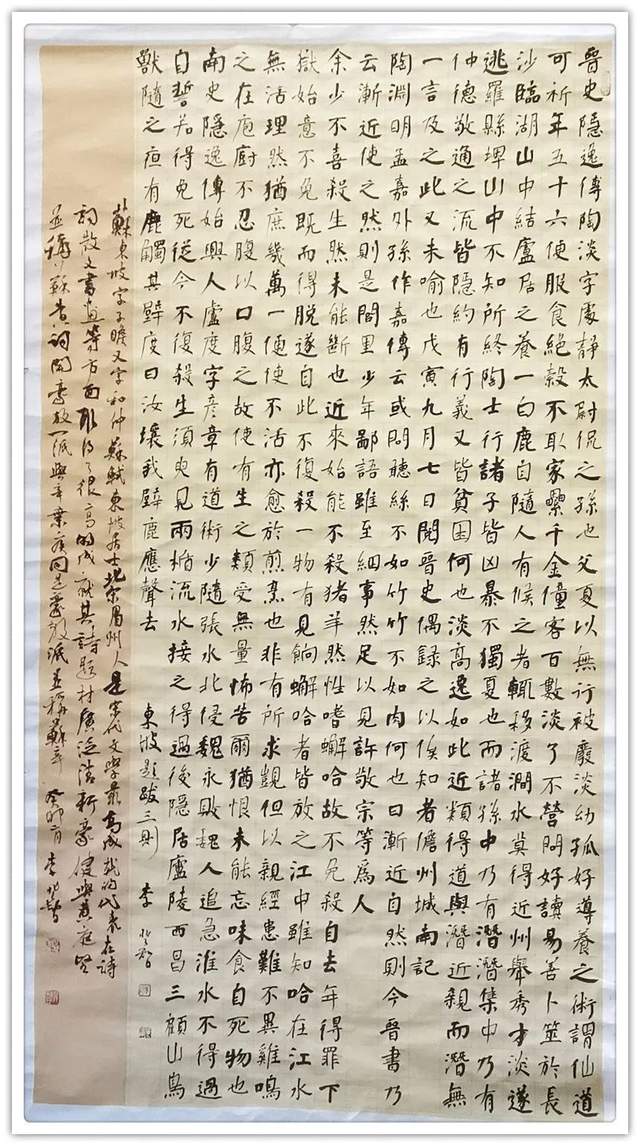 晉史隱逸傳陶淡字處靜太尉侃之孫也父夏以無行被廢淡幼孤好導養之術謂仙道
可祈年五十六便服食絕穀不取家纍千金僮客百數淡了不營問好讀易善卜筮於長
沙臨湖山中結廬居之養一白鹿自隨人有候之者輒移渡澗水莫得近州舉秀才淡遂
逃羅縣埤山中不知所終陶士行諸子皆凶暴不獨夏也而諸孫中乃有潛潛集中乃有
仲德敬通之流皆隱約有行義又皆貧困何也淡高逸如此近類得道與潛近親而潛無
一言及之此又未喻也戊寅九月七日閱晉史偶錄之以俟知者儋州城南記
陶淵明孟嘉外孫作嘉傳云或問聽絲不如竹竹不如肉何也曰漸近自然則今晉書乃
云漸近使之然則是閭里少年鄙語雖至細事然足以見許敬宗等為人
余少不喜殺生然未能斷也近來始能不殺猪羊然性嗜蠏哈故不免殺自去年得罪下
獄始意不免既而得脫遂自此不復殺一物有見餉蠏哈者皆放之江中雖知哈在江水
無活理然猶庶幾萬一便使不活亦愈於煎烹也非有所求覬但以親經患難不異雞鳴
之在庖廚不忍腹以口腹之故使有生之類受無量怖苦爾猶恨未能忘味食自死物也
南史隱逸傳始興人盧度字彥章有道術少隨張水北侵魏永敗魏人追急淮水不得過
自誓若得免死從今不復殺生須臾見兩楯流水接之得過後隱居廬陵西昌三顧山鳥
獸隨之有鹿觸其壁度曰汝壞我壁鹿應聲去
東坡題跋三則 李
蘇東坡字子瞻又字和仲蘇軾東坡居士北宋眉州人是宋代文學最高成就的代表在詩
詞散文書畫等方面取得了很高的成就其詩題材廣泛清新豪健與黃庭堅
並稱蘇黃詞開豪放一派與辛棄疾同是豪放派並稱蘇辛 癸卯 李